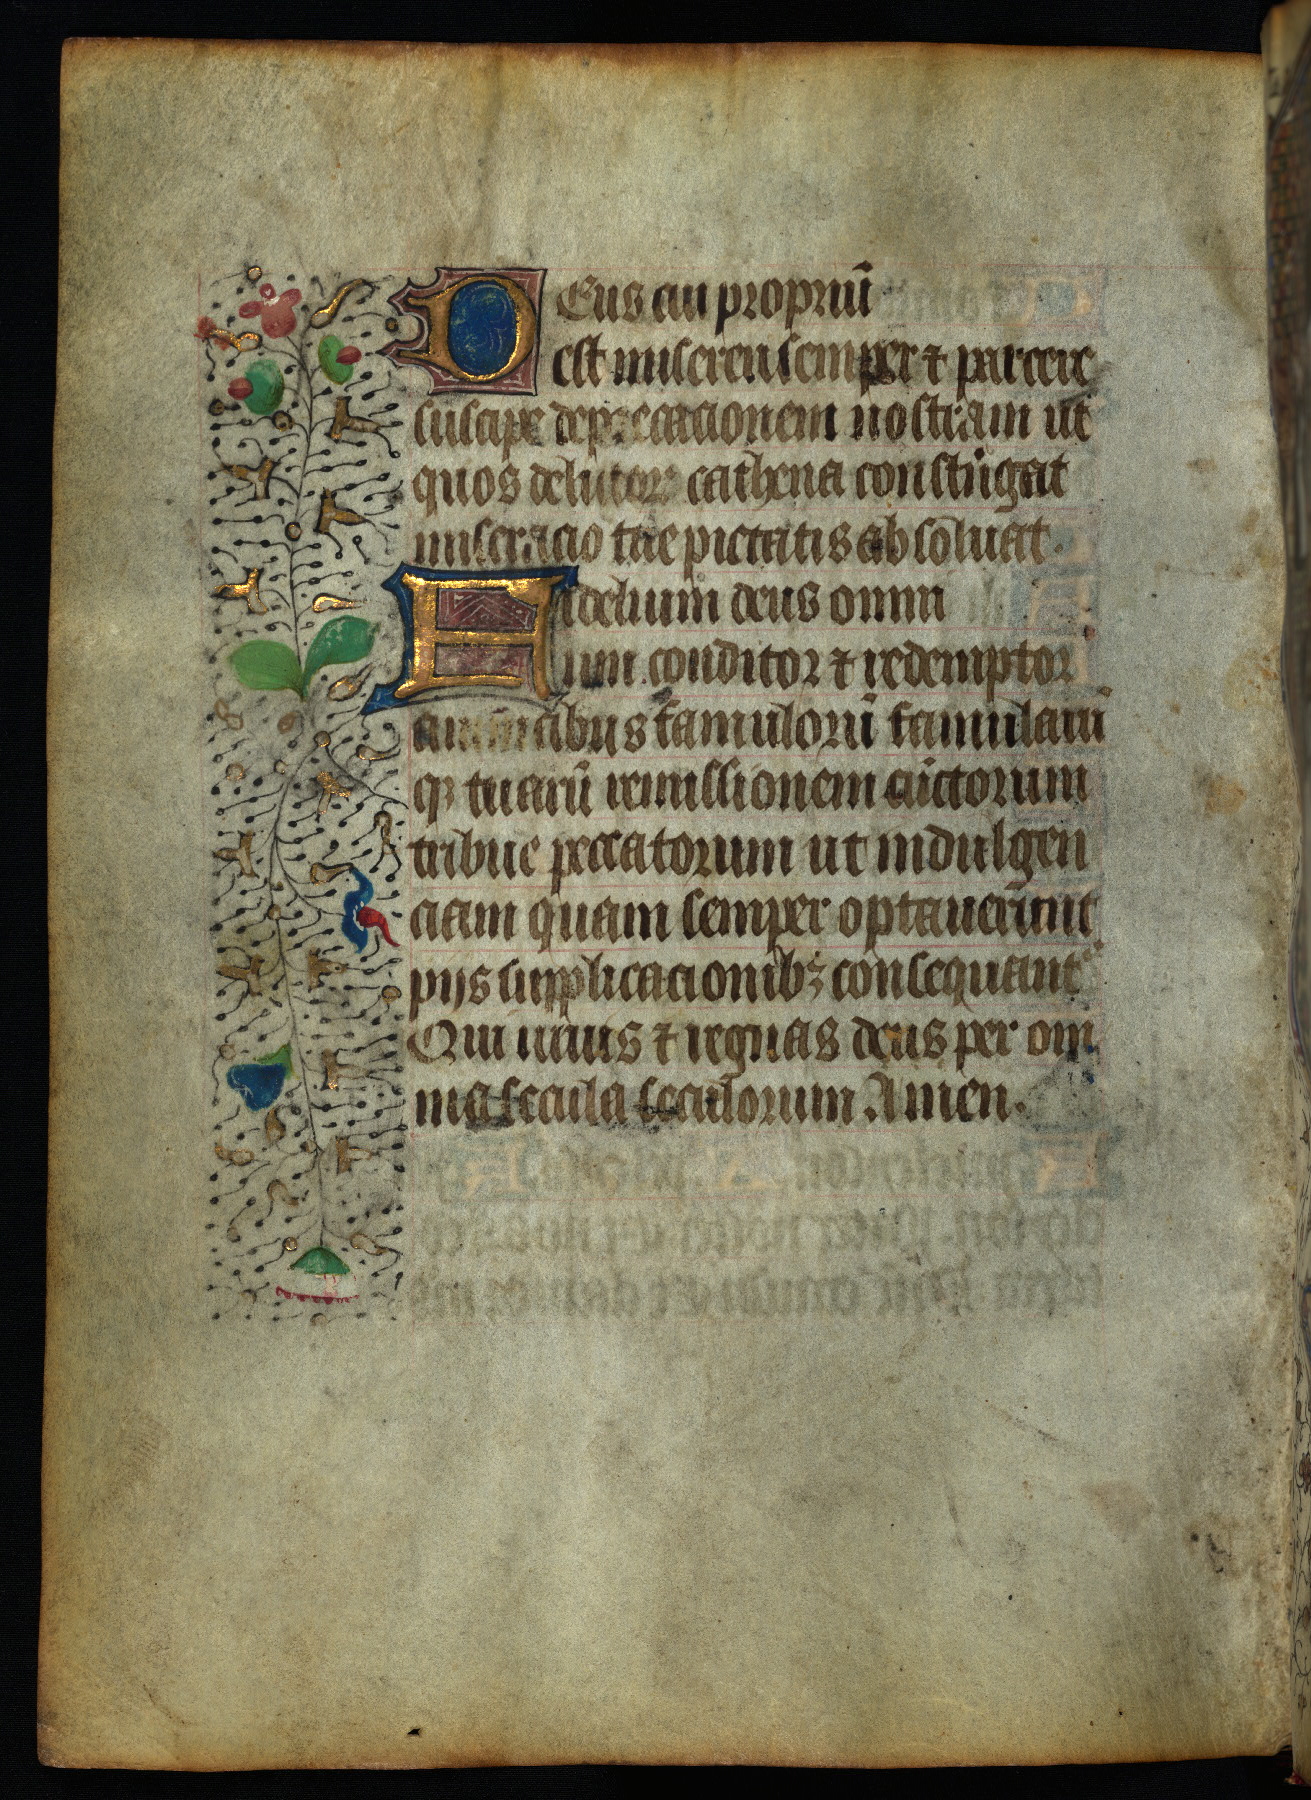 Deus cui propriū
est misereri semper ⁊ parcere
suscipe deprecacionem nostram ut
quos delictorꝝ cathena constringat
miseracio tue pietatis absoluat.
Fidelium deus omni
um conditor ⁊ redemptor
animabus famulorū famularū
qꝫ tuarū remissionem cūctorum
tribue peccatorum ut indulgen
ciam quam semper optauerunt
pijs supplicacionibꝫ consequant᷑
Qui uiuis ⁊ regnas deus per om
nia secula seculorum Amen.